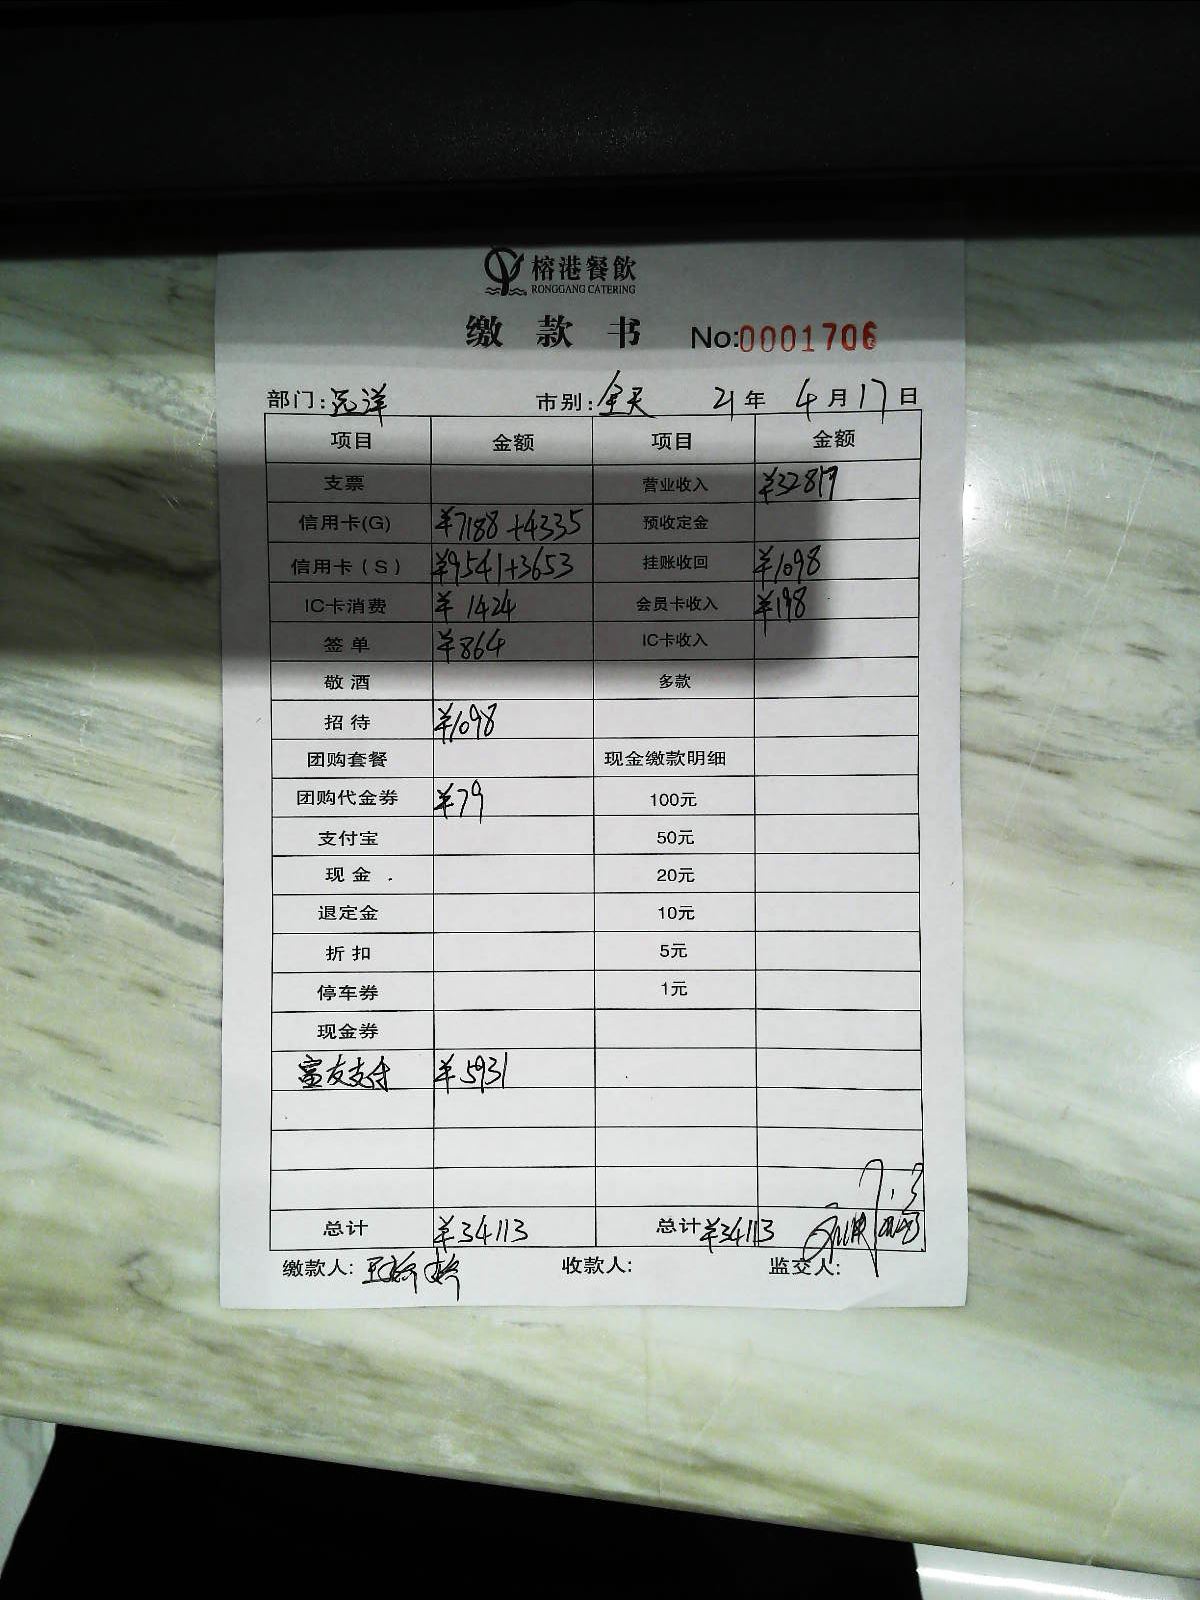 榕港餐飲
RONGGANG CATERING
缴款书 No:0001706
部门:远洋 市别:全天 21年 4月17日
项目 金额 项目 金额
支票 营业收入 ¥32817
信用卡(G) ¥7188+4335 预收定金
信用卡(S) ¥9541+3653 挂账收回 ¥1098
IC卡消费 ¥1424 会员卡收入 ¥198
签单 ¥864 IC卡收入
敬酒 多款
招待 ¥1098
团购套餐 现金缴款明细
团购代金券 ¥79 100元
支付宝 50元
现金 20元
退定金 10元
折扣 5元
停车券 1元
现金券
富友支付 ¥5931
总计 ¥34113 总计 ¥34113
缴款人: 收款人: 监交人: